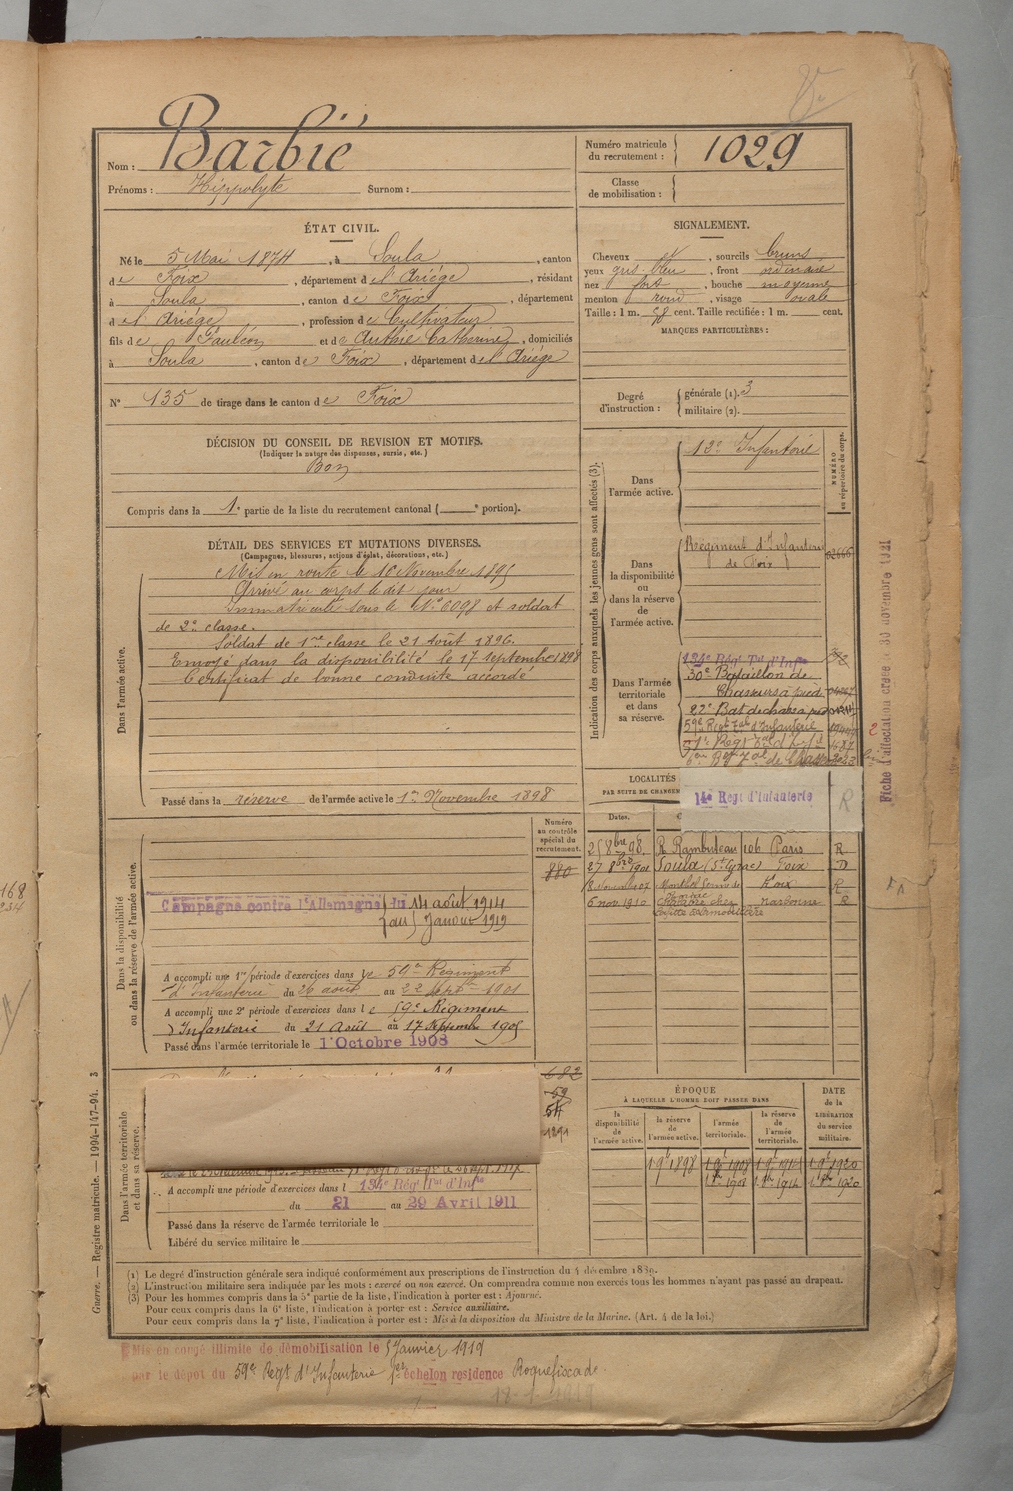 Nom : Barbié
Prénoms : Hippolyte Surnom :
Numéro matricule du recrutement : 1029
Classe de mobilisation :
ÉTAT CIVIL.
Né le 5 Mai 1874, à Soula, canton
de Foix, département de l'Ariège, résidant
à Soula, canton de Foix, département
de l'Ariège, profession de Cultivateur
fils de Fauléon et de Authié Catherine, domiciliés
à Soula, canton de Foix, département de l'Ariège
N° 135 de tirage dans le canton de Foix
SIGNALEMENT.
Cheveux et, sourcils bruns
yeux gris bleu, front ordinaire
nez fort, bouche moyenne
menton rond, visage ovale
Taille : 1 m. 58 cent. Taille rectifiée : 1 m. cent.
MARQUES PARTICULIÈRES :
Degré d'instruction : générale (1). 3
militaire (2).
DÉCISION DU CONSEIL DE REVISION ET MOTIFS.
(Indiquer la nature des dispenses, sursis, etc.)
Bon
Compris dans la 1e partie de la liste du recrutement cantonal ( e portion).
DÉTAIL DES SERVICES ET MUTATIONS DIVERSES.
(Campagnes, blessures, actions d'éclat, décorations, etc.)
Dans l'armée active.
Mis en route le 16 Novembre 1895
Arrivé au corps le dit jour
Immatriculé sous le N° 6098 et soldat
de 2e classe.
Soldat de 1re classe le 21 Août 1896.
Envoyé dans la disponibilité le 17 septembre 1898
Certificat de bonne conduite accordé
Passé dans la réserve de l'armée active le 1er Novembre 1898
Indication des corps auxquels les jeunes gens sont affectés (3).
NUMÉRO au répertoire du corps.
Dans l'armée active.
12e Infanterie
Dans la disponibilité ou dans la réserve de l'armée active.
Régiment d'Infanterie
de Foix 02666
Dans l'armée territoriale et dans sa réserve.
134e Régt Tal d'Infie
30e Bataillon de
Chasseurs à pied
22e Bat de chass à pied
59e Regt Tal d'Infanterie
Fiche d'affectation créée le 30 novembre 1921
LOCALITÉS
PAR SUITE DE CHANGEM
14e Regt d'Infanterie R
Dates.
25 8bre 98. R. Rambuteau 106 Paris R
27 8bre 1901 Soula (St Cyrac) Foix D
Foix R
6 nov 1910 Narbonne R
Dans la disponibilité ou dans la réserve de l'armée active.
Numéro au contrôle spécial du recrutement.
880
Campagne contre l'Allemagne du 14 août 1914
au 5 Janvier 1919
A accompli une 1re période d'exercices dans le 59e Régiment
d'Infanterie du 26 août au 22 septbre 1901
A accompli une 2e période d'exercices dans le 59e Régiment
d'Infanterie du 21 Août au 17 Septembre 1905
Passé dans l'armée territoriale le 1er Octobre 1908
Dans l'armée territoriale et dans sa réserve.
682
59
54
1291
A accompli une période d'exercices dans l 134e Rég Tal d'Infie
du 21 au 29 Avril 1911
Passé dans la réserve de l'armée territoriale le
Libéré du service militaire le
ÉPOQUE
À LAQUELLE L'HOMME DOIT PASSER DANS
la disponibilité de l'armée active.
la réserve de l'armée active.
l'armée territoriale.
la réserve de l'armée territoriale.
DATE de la LIBÉRATION du service militaire.
(1) Le degré d'instruction générale sera indiqué conformément aux prescriptions de l'instruction du 4 décembre 1889.
(2) L'instruction militaire sera indiquée par les mots : exercé ou non exercé. On comprendra comme non exercés tous les hommes n'ayant pas passé au drapeau.
(3) Pour les hommes compris dans la 5e partie de la liste, l'indication à porter est : Ajourné.
Pour ceux compris dans la 6e liste, l'indication à porter est : Service auxiliaire.
Pour ceux compris dans la 7e liste, l'indication à porter est : Mis à la disposition du Ministre de la Marine. (Art. 4 de la loi.)
Guerre. — Registre matricule. — 1994-147-94. 3
Mis en congé illimité de démobilisation le 5 Janvier 1919
par le dépot du 59e Regt d'Infanterie 1er échelon residence Roquefixade
18-1-1919